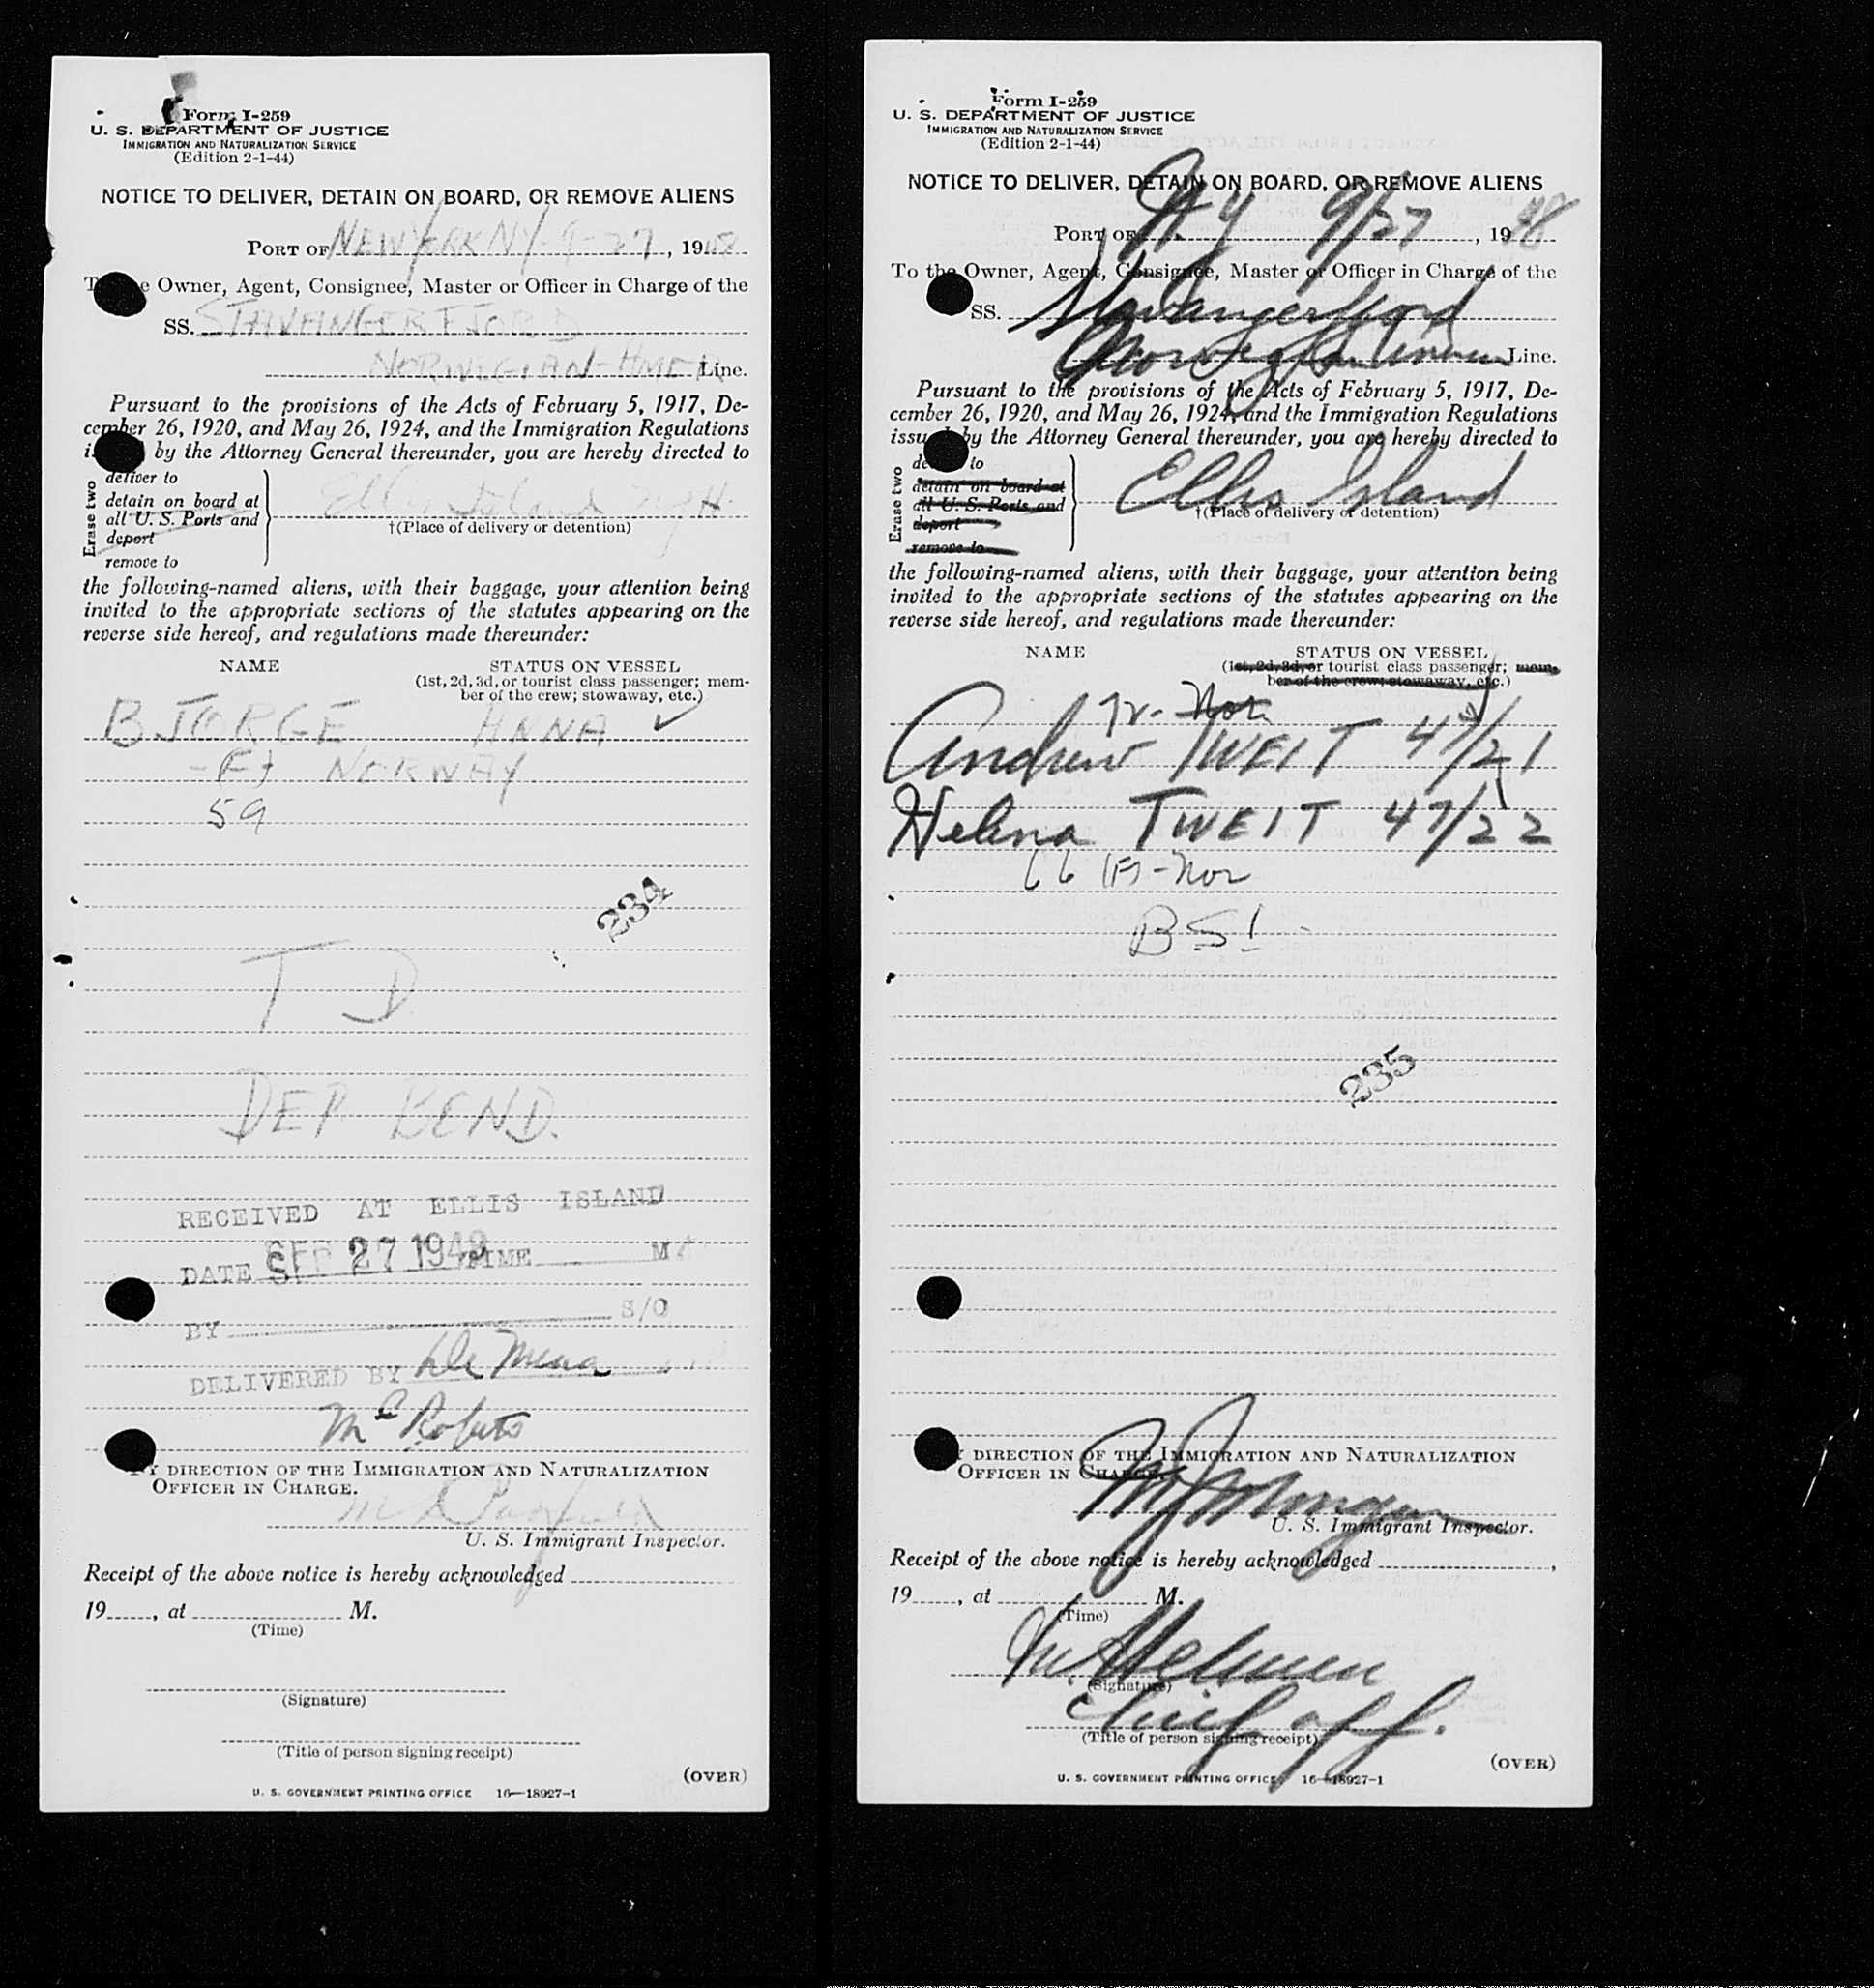 Form I-259
U. S. DEPARTMENT OF JUSTICE
IMMIGRATION AND NATURALIZATION SERVICE
(Edition 2-1-44)
NOTICE TO DELIVER, DETAIN ON BOARD, OR REMOVE ALIENS
PORT OF NEW YORK NY-9-27, 1948
e Owner, Agent, Consignee, Master or Officer in Charge of the
SS. STAVANGERFJORD
NORWEGIAN-AMER Line.
Pursuant to the provisions of the Acts of February 5, 1917, De-
cember 26, 1920, and May 26, 1924, and the Immigration Regulations
by the Attorney General thereunder, you are hereby directed to
Erase two
deliver to
detain on board at
all U. S. Ports and
deport
remove to
Ellis Island
†(Place of delivery or detention)
the following-named aliens, with their baggage, your attention being
invited to the appropriate sections of the statutes appearing on the
reverse side hereof, and regulations made thereunder:
NAME STATUS ON VESSEL
(1st, 2d, 3d, or tourist class passenger; mem-
ber of the crew; stowaway, etc.)
BJORGE ANNA ✓
-(F) NORWAY
59
234
T D
DEP BOND.
RECEIVED AT ELLIS ISLAND
DATE SEP 27 1948 TIME M
BY S/O
DELIVERED BY De Mena
Mc Roberts
BY DIRECTION OF THE IMMIGRATION AND NATURALIZATION
OFFICER IN CHARGE.
U. S. Immigrant Inspector.
Receipt of the above notice is hereby acknowledged
19, at M.
(Time)
(Signature)
(Title of person signing receipt)
(OVER)
U. S. GOVERNMENT PRINTING OFFICE 16—18927-1
Form I-259
U. S. DEPARTMENT OF JUSTICE
IMMIGRATION AND NATURALIZATION SERVICE
(Edition 2-1-44)
NOTICE TO DELIVER, DETAIN ON BOARD, OR REMOVE ALIENS
PORT OF N.Y 9/27, 1948
To the Owner, Agent, Consignee, Master or Officer in Charge of the
SS. Stavangerfjord
Norwegian Line.
Pursuant to the provisions of the Acts of February 5, 1917, De-
cember 26, 1920, and May 26, 1924, and the Immigration Regulations
issu by the Attorney General thereunder, you are hereby directed to
Erase two
de to
detain on board at
all U. S. Ports and
deport
remove to
Ellis Island
†(Place of delivery or detention)
the following-named aliens, with their baggage, your attention being
invited to the appropriate sections of the statutes appearing on the
reverse side hereof, and regulations made thereunder:
NAME STATUS ON VESSEL
(1st, 2d, 3d, or tourist class passenger; mem-
ber of the crew; stowaway, etc.)
Nor.
Andrew TWEIT 47/21
Helena TWEIT 47/22
66 (F)-Nor
BSI
235
DIRECTION OF THE IMMIGRATION AND NATURALIZATION
OFFICER IN CHARGE.
Morgan
U. S. Immigrant Inspector.
Receipt of the above notice is hereby acknowledged ,
19, at M.
(Time)
(Signature)
Chief off.
(Title of person signing receipt)
(OVER)
U. S. GOVERNMENT PRINTING OFFICE 16—18927-1